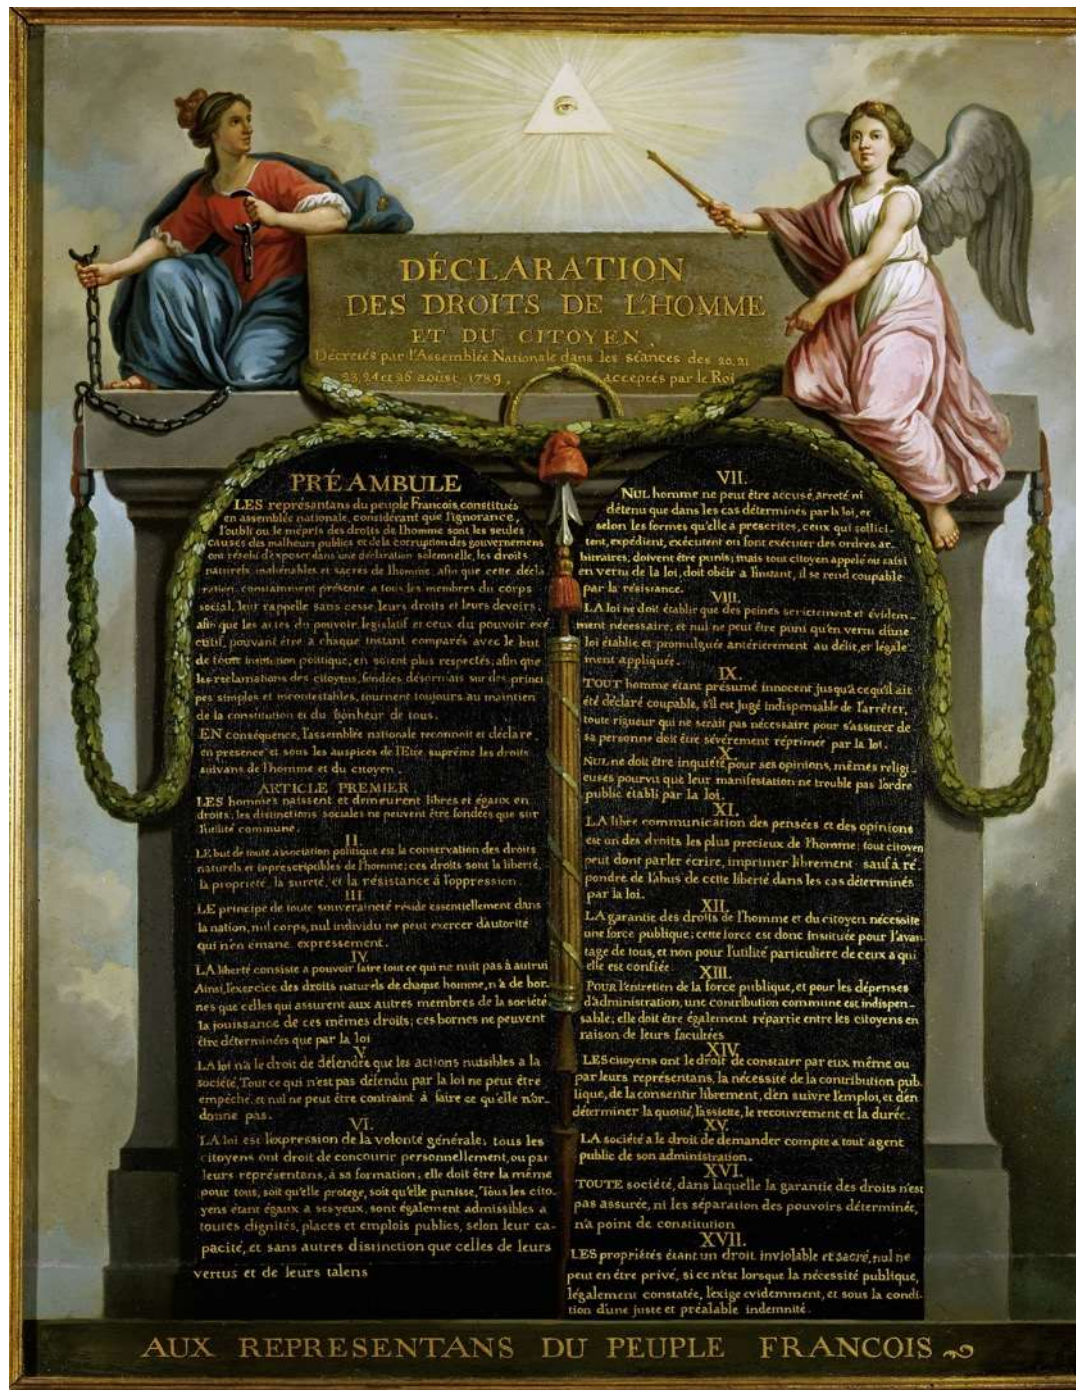 DÉCLARATION
DES DROITS DE L'HOMME
ET DU CITOYEN,
Décretés par l'Assemblée Nationale dans les séances des 20, 21
23, 24 et 26 aoûst 1789, acceptés par le Roi
PRÉAMBULE
LES représantans du peuple Francois, constitués
en assemblée nationale, considérant que l'ignorance,
l'oubli ou le mépris des droits de l'homme sont les seules
causes des malheurs publics et de la corruption des gouvernemens
ont résolu d'exposer dans une déclaration solemnelle, les droits
naturels, inaliénables et sacrés de l'homme, afin que cette décla
ration, constamment présente a tous les membres du corps
social, leur rappelle sans cesse leurs droits et leurs devoirs,
afin que les actes du pouvoir legislatif et ceux du pouvoir exé
cutif, pouvant être a chaque instant comparés avec le but
de toute institution politique, en soient plus respectés; afin que
les reclamations des citoyens, fondées désormais sur des princi
pes simples et incontestables, tournent toujours au maintien
de la constitution et du bonheur de tous.
EN conséquence, l'assemblée nationale reconnoit et déclare,
en presence et sous les auspices de l'Etre suprême les droits
suivans de l'homme et du citoyen.
ARTICLE PREMIER
LES hommes naissent et demeurent libres et égaux en
droits, les distinctions sociales ne peuvent être fondées que sur
l'utilité commune.
II.
LE but de toute association politique est la conservation des droits
naturels et inprescriptibles de l'homme; ces droits sont la liberté,
la propriété, la sureté, et la résistance à l'oppression.
III.
LE principe de toute souveraineté réside essentiellement dans
la nation, nul corps, nul individu ne peut exercer d'autorité
qui n'en emane expressement.
IV.
LA liberté consiste a pouvoir faire tout ce qui ne nuit pas à autrui
Ainsi, l'exercice des droits naturels de chaque homme, n'a de bor-
nes que celles qui assurent aux autres membres de la société
la jouissance de ces mêmes droits; ces bornes ne peuvent
être déterminées que par la loi
V.
LA loi n'a le droit de défendre que les actions nuisibles a la
société, Tout ce qui n'est pas défendu par la loi ne peut être
empêché, et nul ne peut être contraint à faire ce qu'elle n'or-
donne pas.
VI.
LA loi est l'expression de la volonté générale; tous les
citoyens ont droit de concourir personnellement, ou par
leurs représentans, à sa formation; elle doit être la même
pour tous, soit qu'elle protege, soit qu'elle punisse, Tous les cito-
yens étant égaux a ses yeux, sont également admissibles a
toutes dignités, places et emplois publics, selon leur ca-
pacité, et sans autres distinction que celles de leurs
vertus et de leurs talens
VII.
NUL homme ne peut être accusé, arreté ni
détenu que dans les cas déterminés par la loi, et
selon les formes qu'elle a prescrites, ceux qui sollici-
tent, expédient, exécutent ou font exécuter des ordres ar-
bitraires, doivent être punis; mais tout citoyen appelé ou saisi
en vertu de la loi, doit obéir a l'instant, il se rend coupable
par la résistance.
VIII.
LA loi ne doit établir que des peines strictement et évidem-
ment nécessaire, et nul ne peut être puni qu'en vertu d'une
loi établie et promulguée antérierement au délit, et légale-
ment appliquée.
IX.
TOUT homme étant présumé innocent jusqu'à ce qu'il ait
été déclaré coupable, s'il est jugé indispensable de l'arrêter,
toute rigueur qui ne serait pas nécessaire pour s'assurer de
sa personne doit être sévèrement réprimée par la loi.
X.
NUL ne doit être inquiété pour ses opinions, mêmes religi-
euses pourvu que leur manifestation ne trouble pas l'ordre
public établi par la loi.
XI.
LA libre communication des pensées et des opinions
est un des droits les plus precieux de l'homme; tout citoyen
peut dont parler écrire, imprimer librement sauf à ré
pondre de l'abus de cette liberté dans les cas déterminés
par la loi.
XII.
LA garantie des droits de l'homme et du citoyen nécessite
une force publique; cette force est donc instituée pour l'avan-
tage de tous, et non pour l'utilité particuliere de ceux a qui
elle est confiée.
XIII.
POUR l'entretien de la force publique, et pour les dépenses
d'administration, une contribution commune est indispen-
sable; elle doit être également répartie entre les citoyens en
raison de leurs facultées
XIV.
LES citoyens ont le droit de constater par eux même ou
par leurs représentans, la nécessité de la contribution pub-
lique, de la consentir librement, d'en suivre l'emploi, et d'en
déterminer la quotité, l'assiette, le recouvrement et la durée.
XV.
LA société a le droit de demander compte a tout agent
public de son administration.
XVI.
TOUTE société, dans laquelle la garantie des droits n'est
pas assurée, ni les séparation des pouvoirs déterminée,
n'a point de constitution
XVII.
LES propriétés étant un droit inviolable et sacré, nul ne
peut en être privé, si ce n'est lorsque la nécessité publique,
légalement constatée, l'exige evidemment, et sous la condi-
tion d'une juste et préalable indemnité.
AUX REPRESENTANS DU PEUPLE FRANCOIS